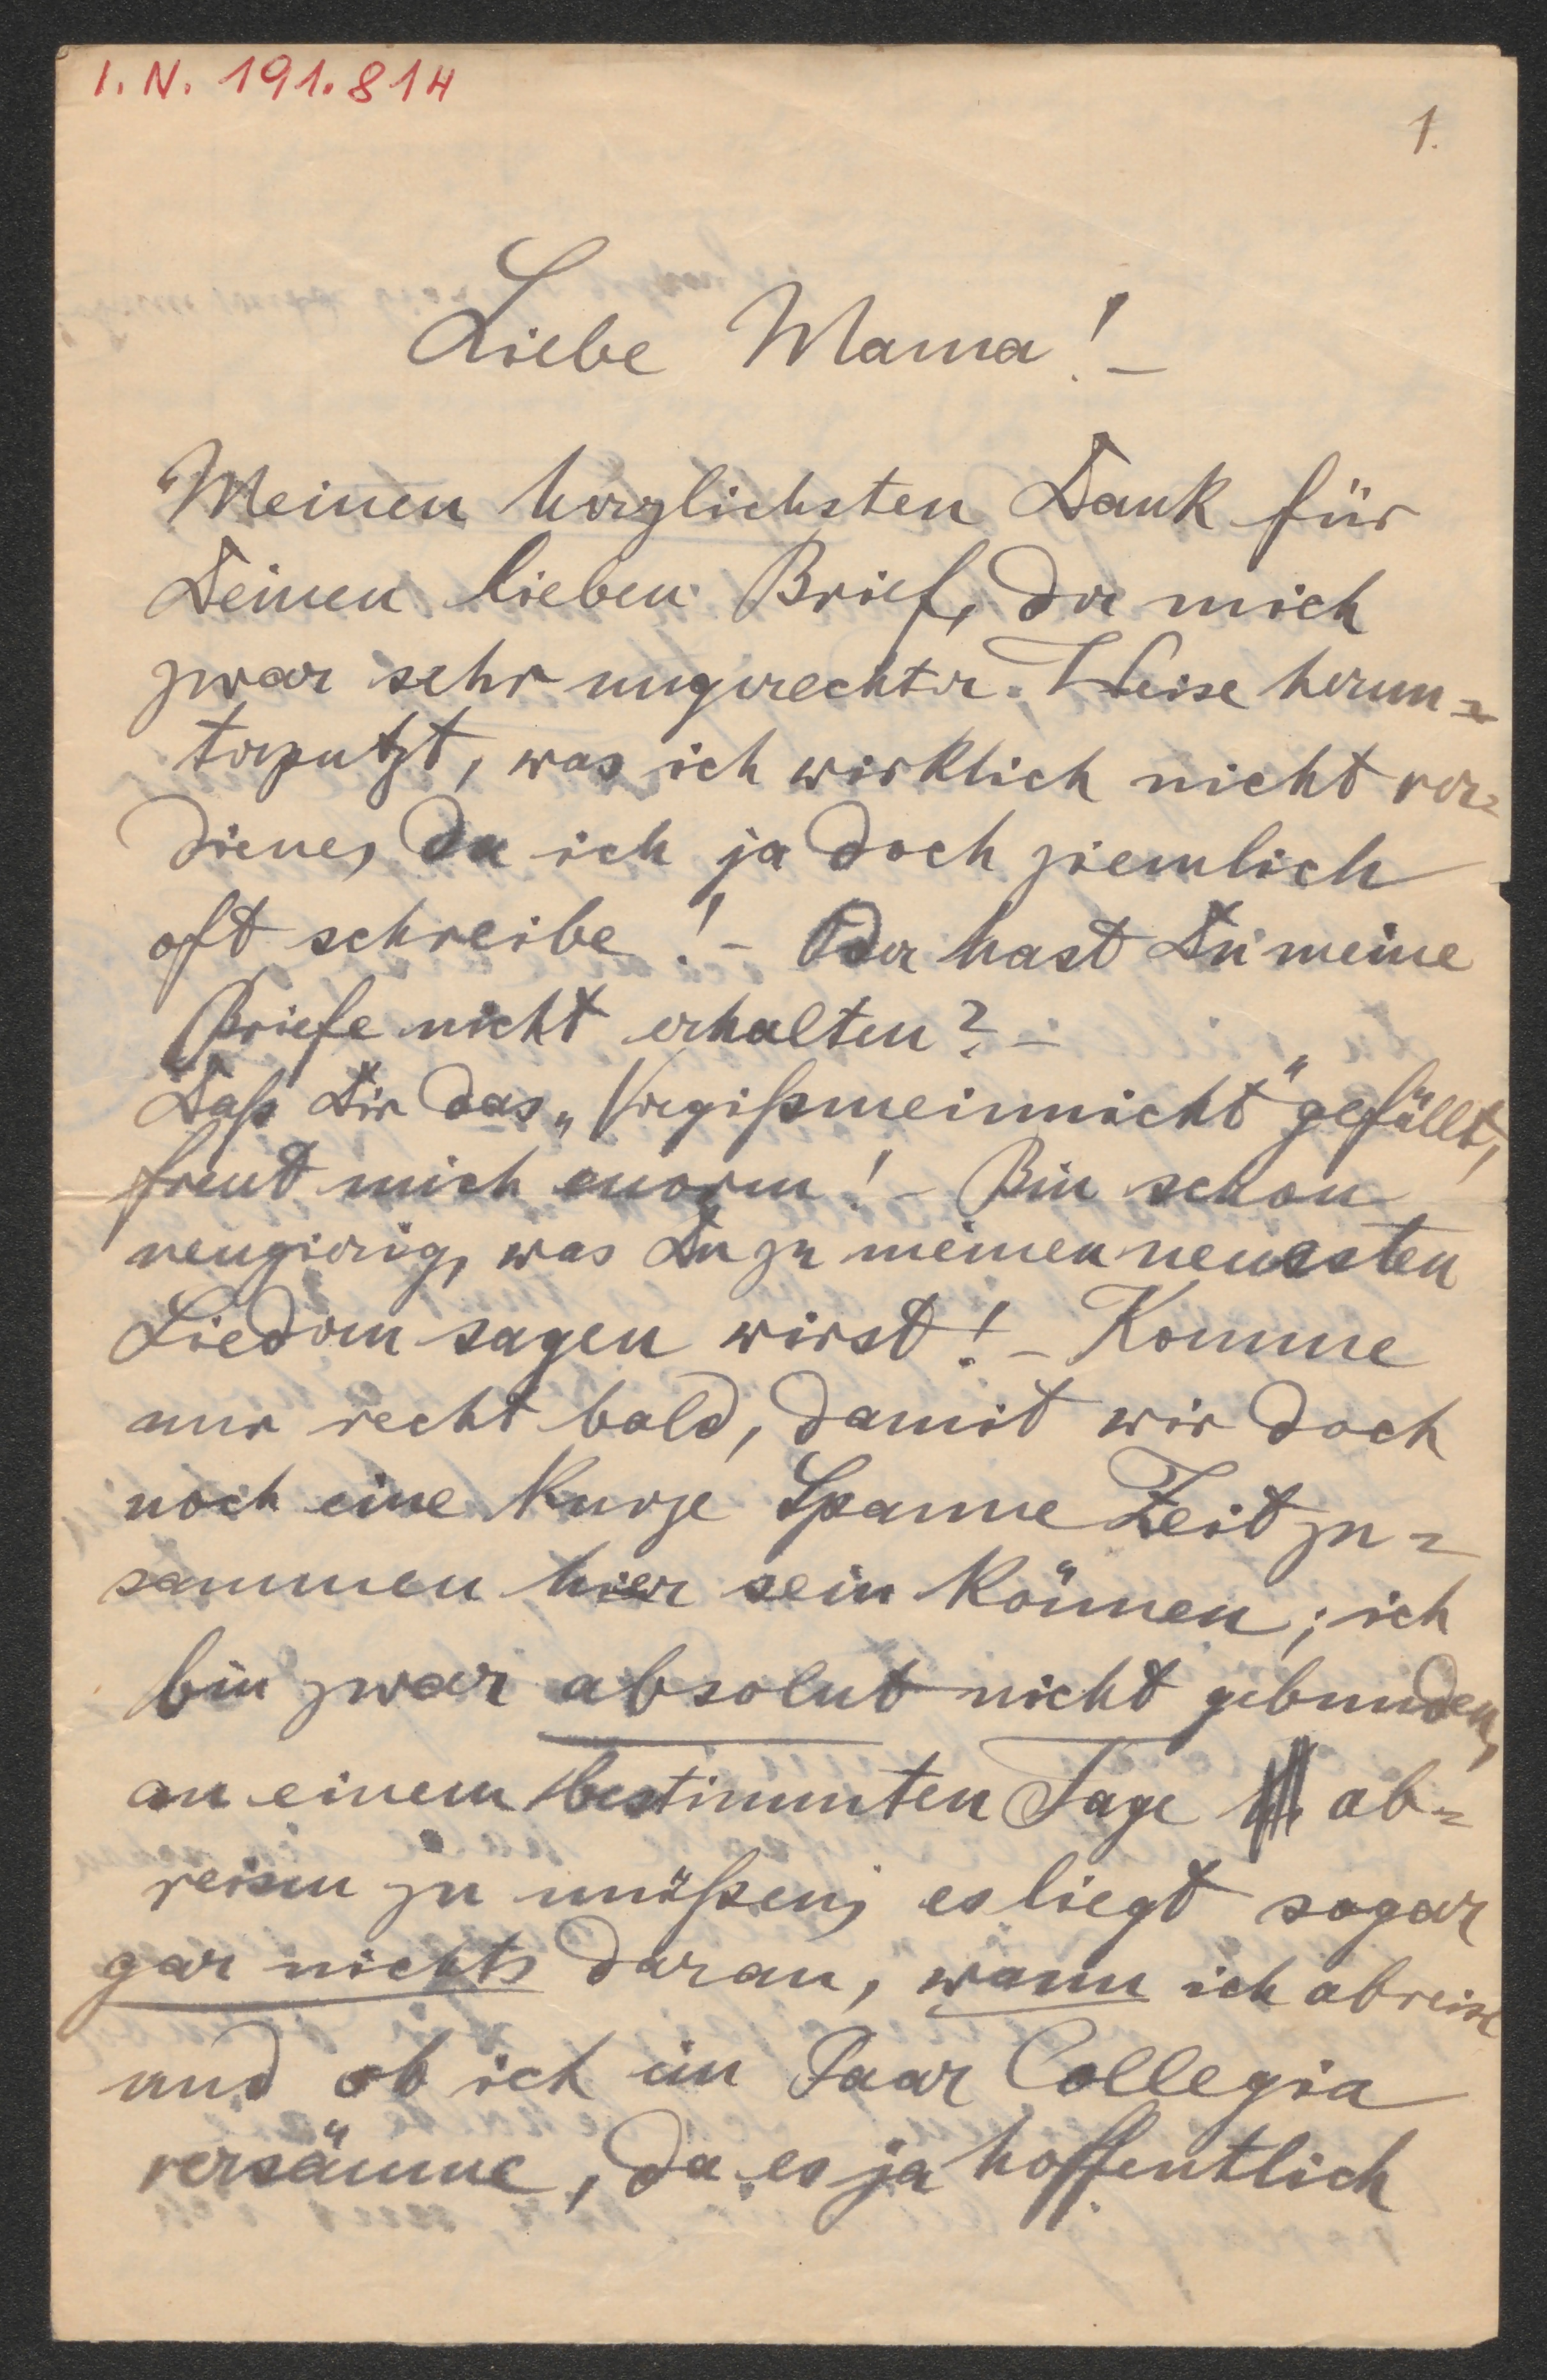 I. N. 191.814
1.
Liebe Mama! –
Meinen herzlichsten Dank für
Deinen lieben Brief, der mich
zwar sehr ungerechter Weise herun=
terputzt, was ich wirklich nicht ver=
diene, da ich ja doch ziemlich
oft schreibe! – Oder hast Du meine
Briefe nicht erhalten? –
Daß Dir das „Vergißmeinnicht" gefällt,
freut mich enorm! – Bin schon
neugierig, was Du zu meinen neuesten
Liedern sagen wirst! – Komme
nur recht bald, damit wir doch
noch eine kurze Spanne Zeit zu=
sammen hier sein können; ich
bin zwar absolut nicht gebunden,
an einem bestimmten Tage ab=
reisen zu müßen; es liegt sogar
gar nichts daran, wann ich abreise
und ob ich ein Paar Collegia
versäume, da es ja hoffentlich